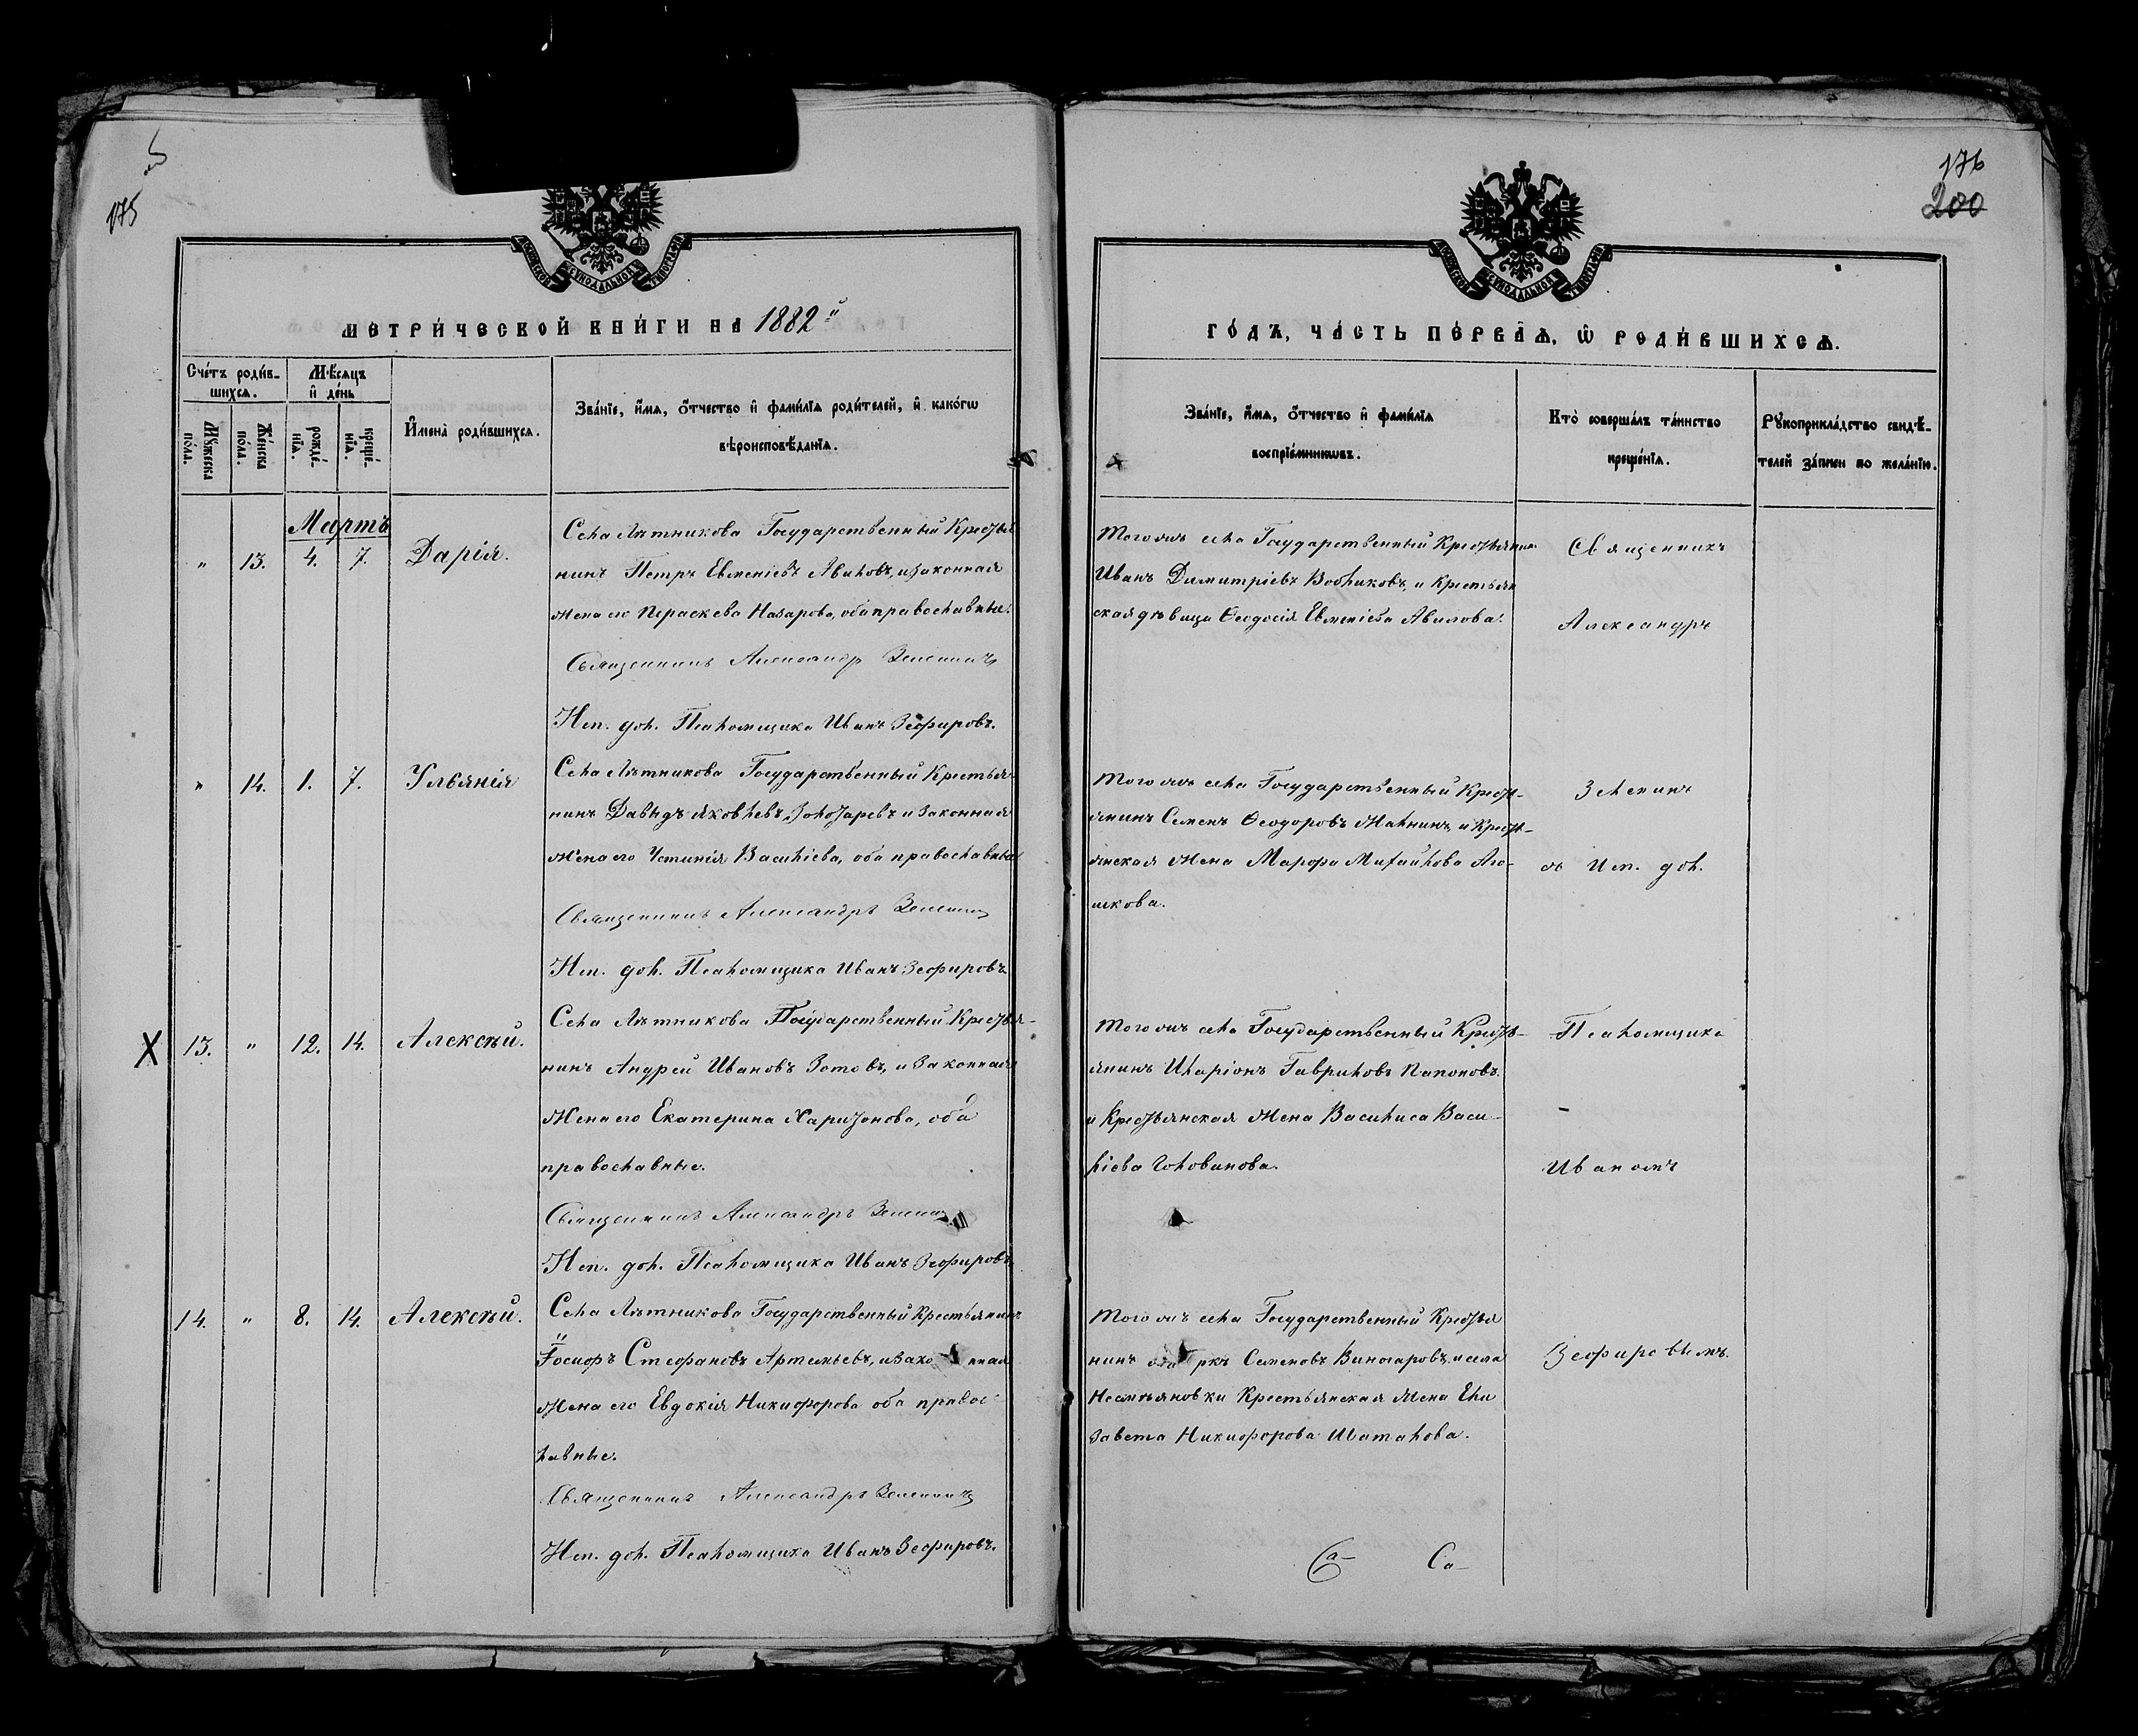 175
176
200
МОСКОВСКОЙ СѴНОДАЛЬНОЙ ТИПОГРАФІИ
МОСКОВСКОЙ СѴНОДАЛЬНОЙ ТИПОГРАФІИ
МЕТРИ́ЧЕСКОЙ КНИ́ГИ НА 1882й
ГО́ДЪ, ЧА́СТЬ ПЕ́РВАѦ, Ѽ РОДИ́ВШИХСѦ.
Сче́тъ роди́в-
шихсѧ.
Мѣ́сѧцъ
и҆ де́нь
Мꙋ́жеска
по́ла.
Же́нска
по́ла.
рожде́-
нїѧ.
креще́-
нїѧ.
И҆мена̀ роди́вшихсѧ.
Зва́нїе, и҆́мѧ, ѻ҆́тчество и҆ фами́лїѧ роди́телей, и҆ како́гѡ
вѣроисповѣ́данїѧ.
Зва́нїе, и҆́мѧ, ѻ҆́тчество и҆ фами́лїѧ
воспрїе́мникѡвъ.
Кто̀ соверша́лъ та́инство
креще́нїѧ.
Рꙋкоприкла́дство свидѣ́-
телей за́писи по жела́нїю.
Мартъ
" 13. 4. 7. Дарія.
Села Лѣтникова Государственный Крестья-
нинъ Петръ Евменіевъ Авиловъ, и законная
жена его Параскева Назарова, оба православные.
Священникъ Александръ Зеленинъ
Исп. дол. Псаломщика Иванъ Зефировъ.
Тогожъ села Государственный Крестьянинъ
Иванъ Димитріевъ и Крестьян
ская дѣвица Ѳеодосія Евменіева Авилова.
Священникъ
Александръ
" 14. 1. 7. Ульянія
Села Лѣтникова Государственный Крестья-
нинъ Давыдъ Яковлевъ Золотаревъ и законная
жена его Устинія Васильева, оба православные
Священникъ Александръ Зеленинъ
Исп. дол. Псаломщика Иванъ Зефировъ
Тогожъ села Государственный Крест-
янинъ Семенъ Ѳеодоровъ и Крест-
янская жена Марфа Михайлова
Зеленинъ
съ Исп. дол.
X 13. " 12. 14. Алексѣй.
Села Лѣтникова Государственный Крестья-
нинъ Андрей Ивановъ Зотовъ, и законная
жена его Екатерина Харитонова, оба
православные.
Священникъ Александръ Зеленинъ
Исп. дол. Псаломщика Иванъ Зефировъ
Тогожъ села Государственный Кресть-
янинъ Иларіонъ Гавриловъ Папоновъ.
и Крестьянская жена Василиса Васи-
ліева Голованова.
Псаломщика
-
Иваномъ
14. " 8. 14. Алексѣй.
Села Лѣтникова Государственный Крестьянинъ
Іосифъ Стефановъ Артемьевъ, и законная
жена его Евдокія Никифорова оба правос-
лавные.
Священникъ Александръ Зеленинъ
Исп. дол. Псаломщика Иванъ Зефировъ.
Тогожъ села Государственный Крестья
нинъ Семеновъ и села
Крестьянская жена Ели
завета Никифорова Шаталова.
Зефировымъ.
Са- Са-